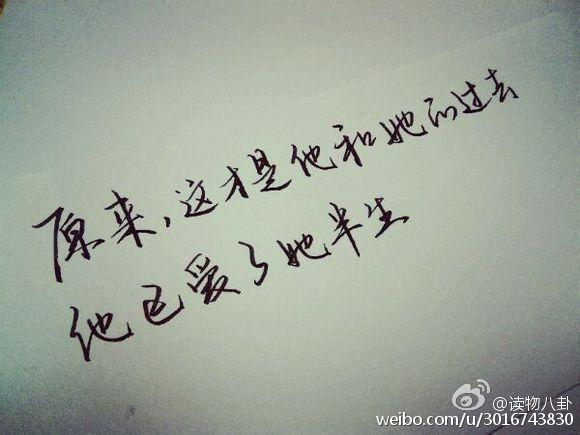 原来,这才是他和她的过去
他已爱了她半生
@读物八卦
weibo.com/u/3016743830